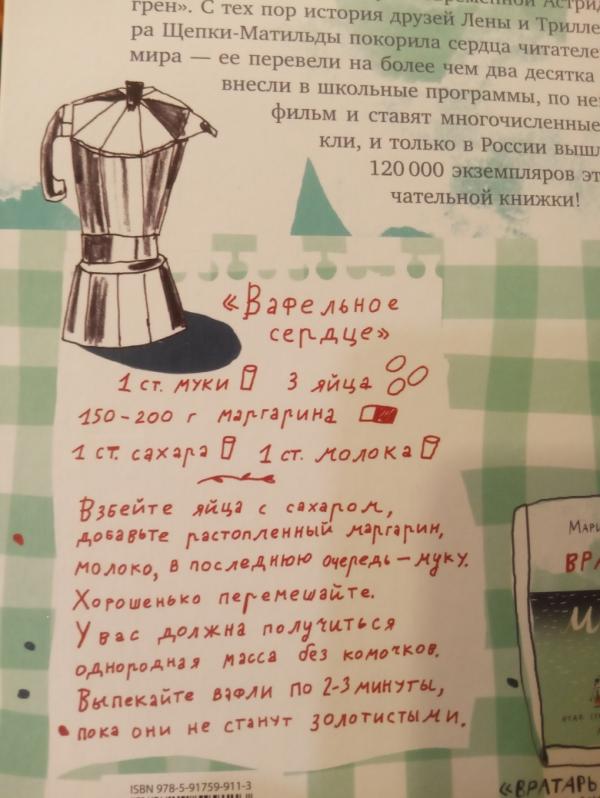 временной Астрид
грен». С тех пор история друзей Лены и Трилле
ра Щепки-Матильды покорила сердца читателе
мира — ее перевели на более чем два десятка
внесли в школьные программы, по не
фильм и ставят многочисленные
кли, и только в России вышл
120 000 экземпляров эт
чательной книжки!
«Вафельное
сердце»
1 ст. муки 3 яйца
150-200 г маргарина
1 ст. сахара 1 ст. молока
Взбейте яйца с сахаром,
добавьте растопленный маргарин,
молоко, в последнюю очередь – муку.
Хорошенько перемешайте.
У вас должна получиться
однородная масса без комочков.
Выпекайте вафли по 2-3 минуты,
пока они не станут золотистыми.
Мари
ВРА
И
ISBN 978-5-91759-911-3
«ВРАТАРЬ